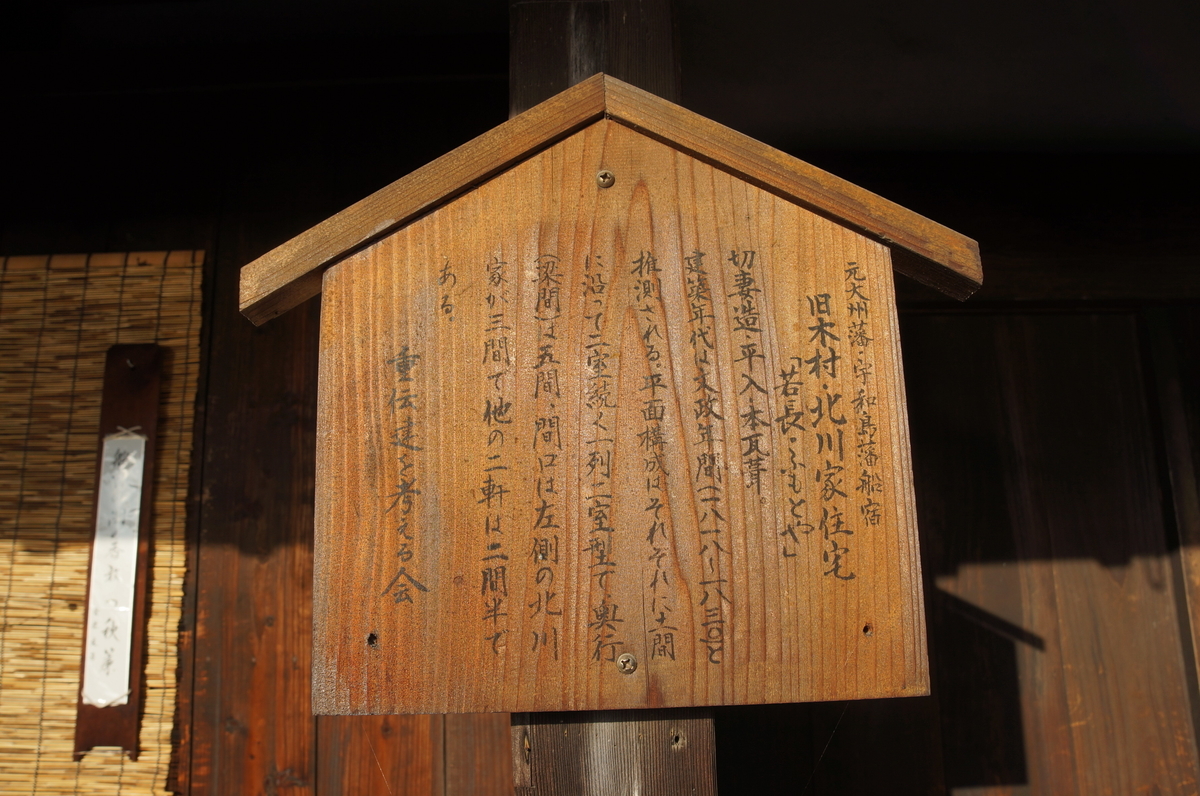 元大州藩・宇和島藩船宿
旧木村・北川家住宅
「若長・ふもとや」
切妻造・平入本瓦葺。
建築年代は文政年間(一八一八〜一八三〇)と
推測される。平面構成はそれぞれに土間
に沿って二室続く一列二室型で、奥行
(梁間)は五間、間口は左側の北川
家が三間で他の二軒は二間半で
ある。
重伝建を考える会